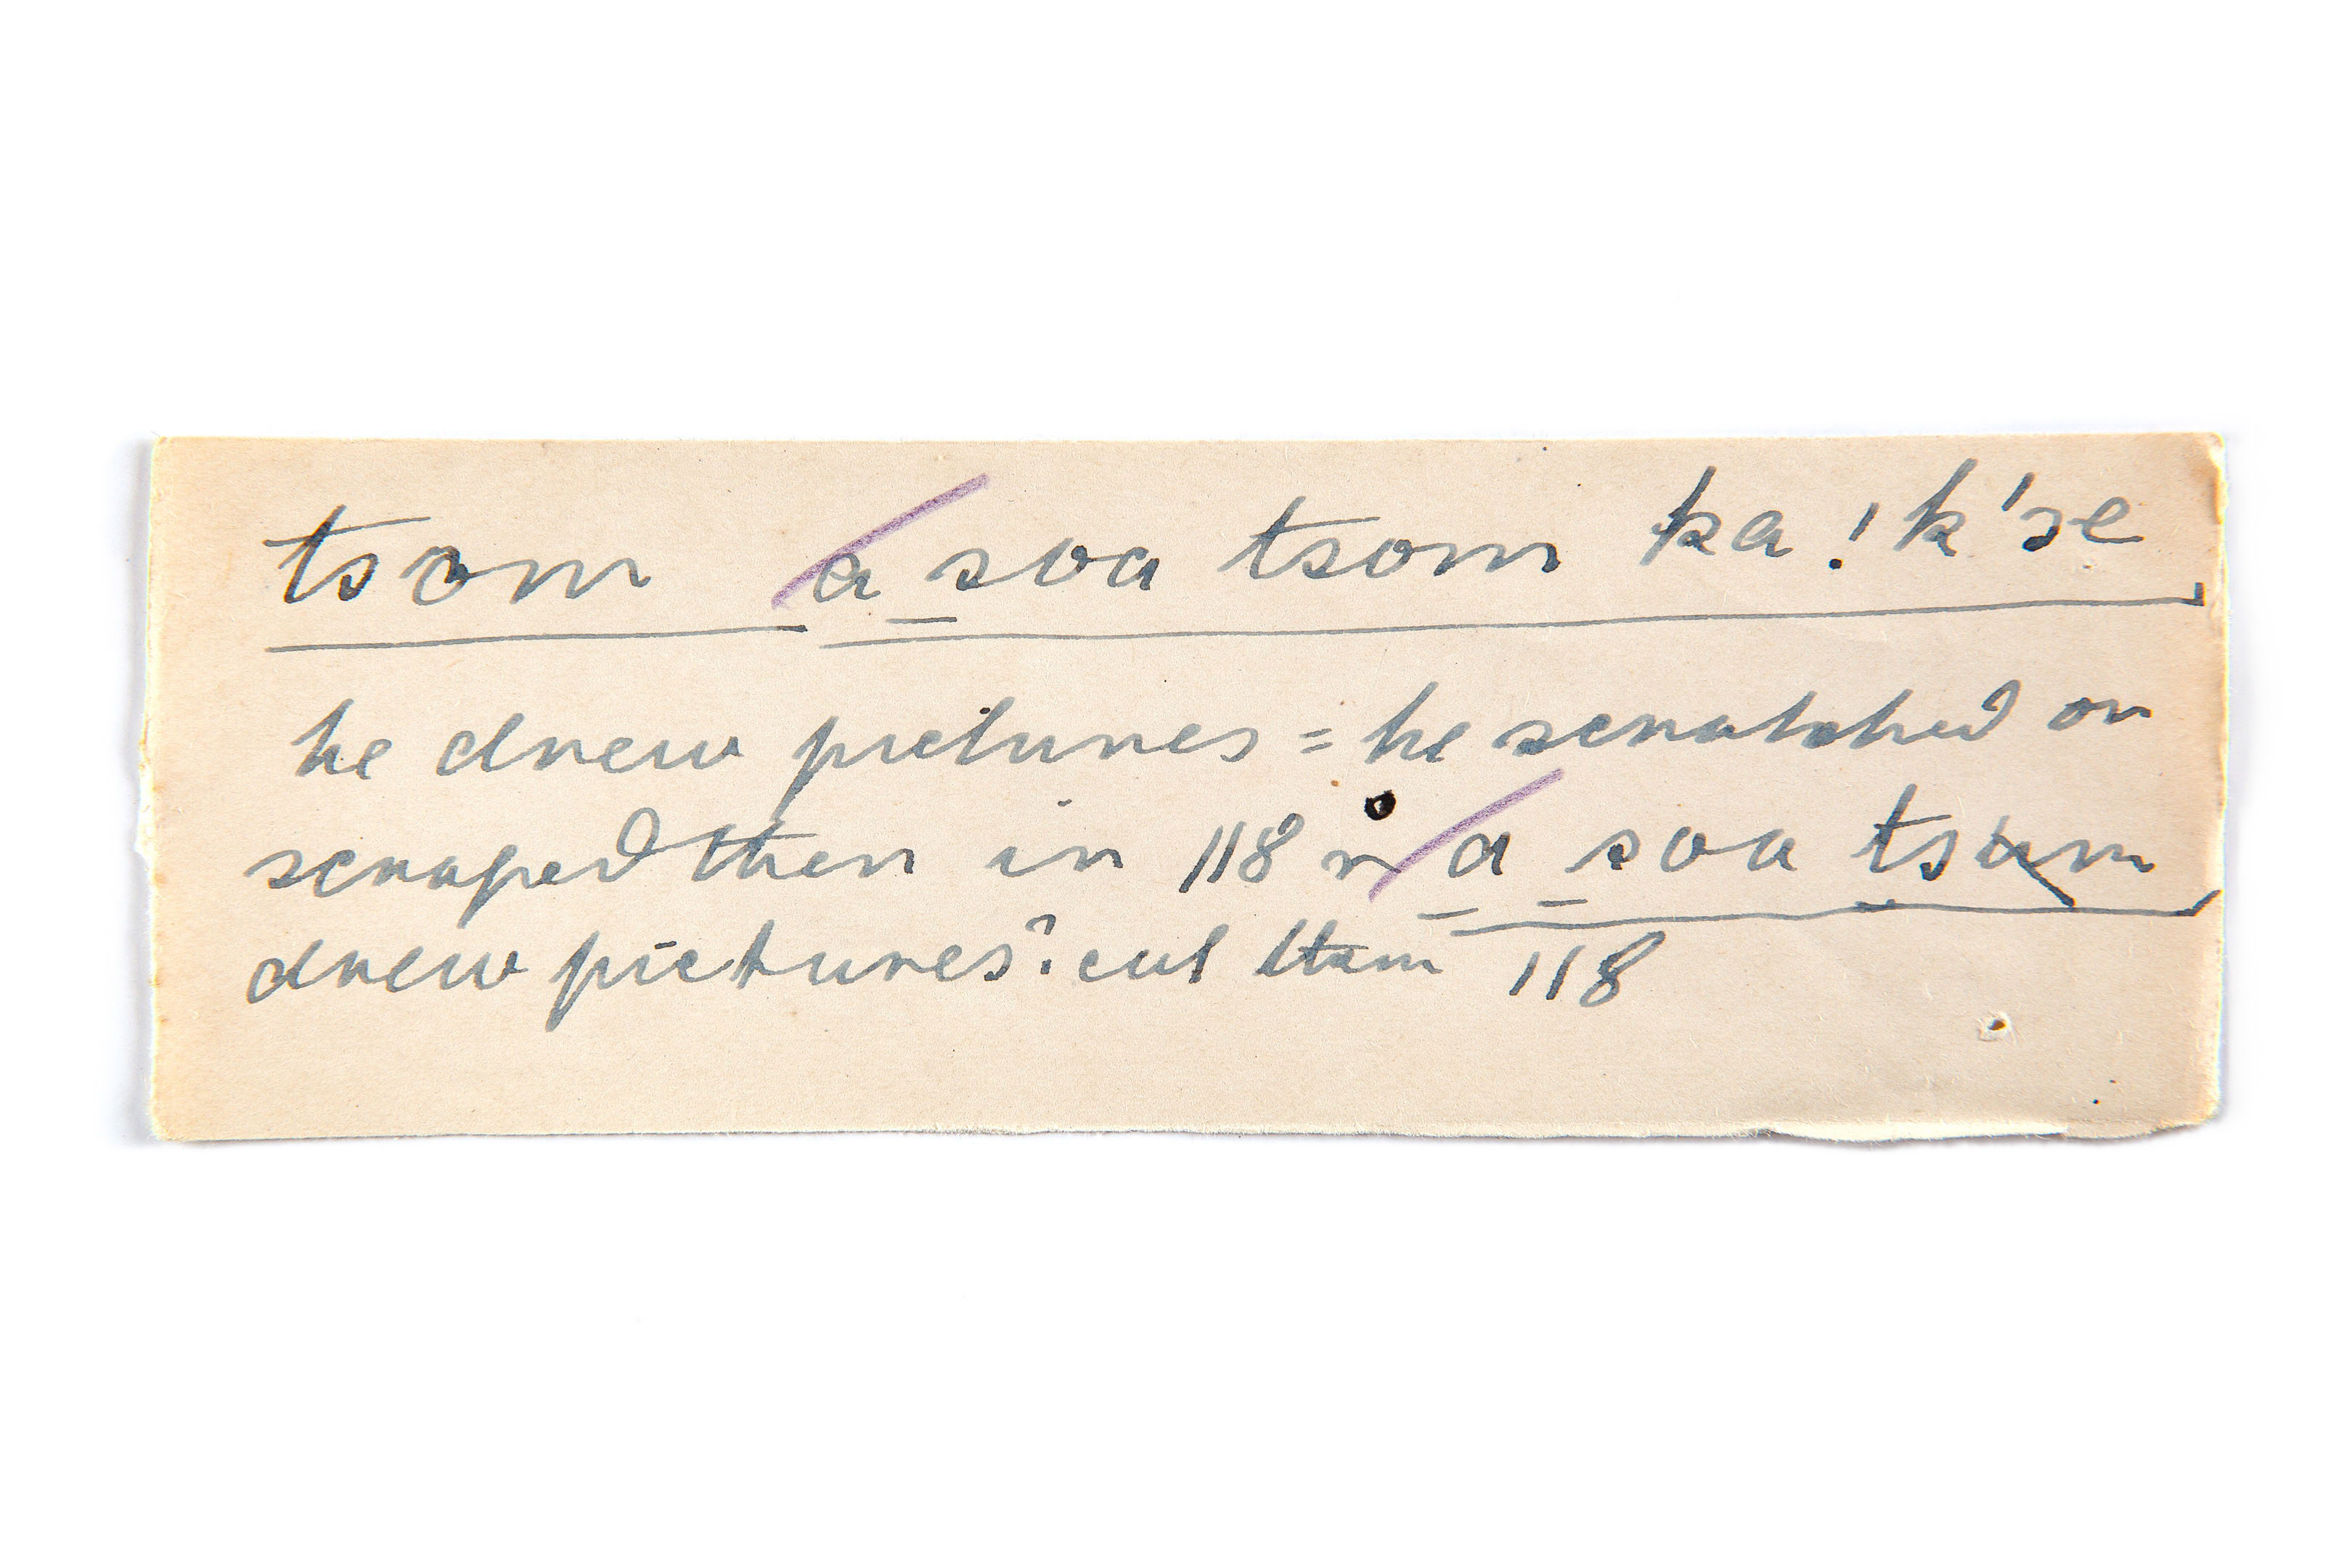 tsom a soa tsom ka ! k'se
he drew pictures = he scratched or
scraped then in 118 r a soa tsum
drew pictures? cut them 118